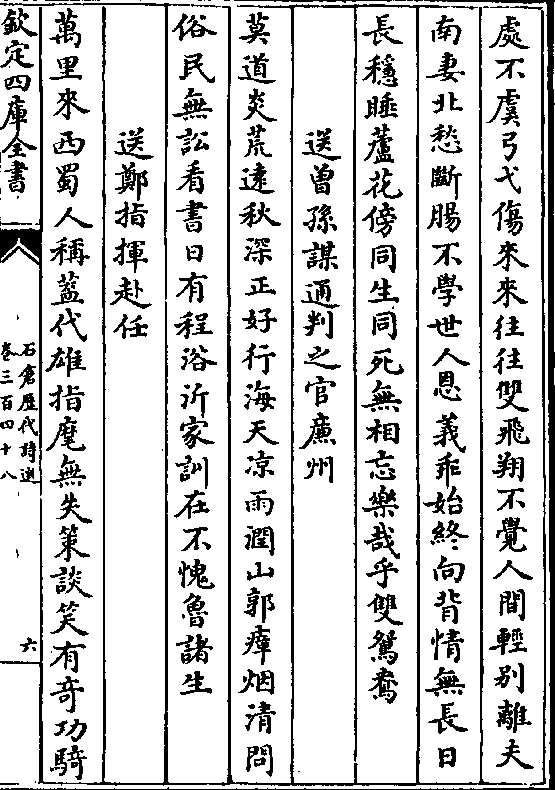 處不虞弓弋傷來來往往雙飛翔不覺人間輕別離夫
南妻北愁斷腸不學世人恩義乖始終向背情無長日
長穩睡蘆花傍同生同死無相忘樂哉乎雙鴛鴦
送曽孫謀通判之官廉州
莫道炎荒逺秋深正好行海天凉雨潤山郭瘴烟清問
俗民無訟看書日有程浴沂家訓在不愧魯諸生
送鄭指揮赴任
萬里來西蜀人稱蓋代雄指麾無失策談笑有奇功騎
欽定四庫全書
石倉歴代詩選
卷三百四十八
六